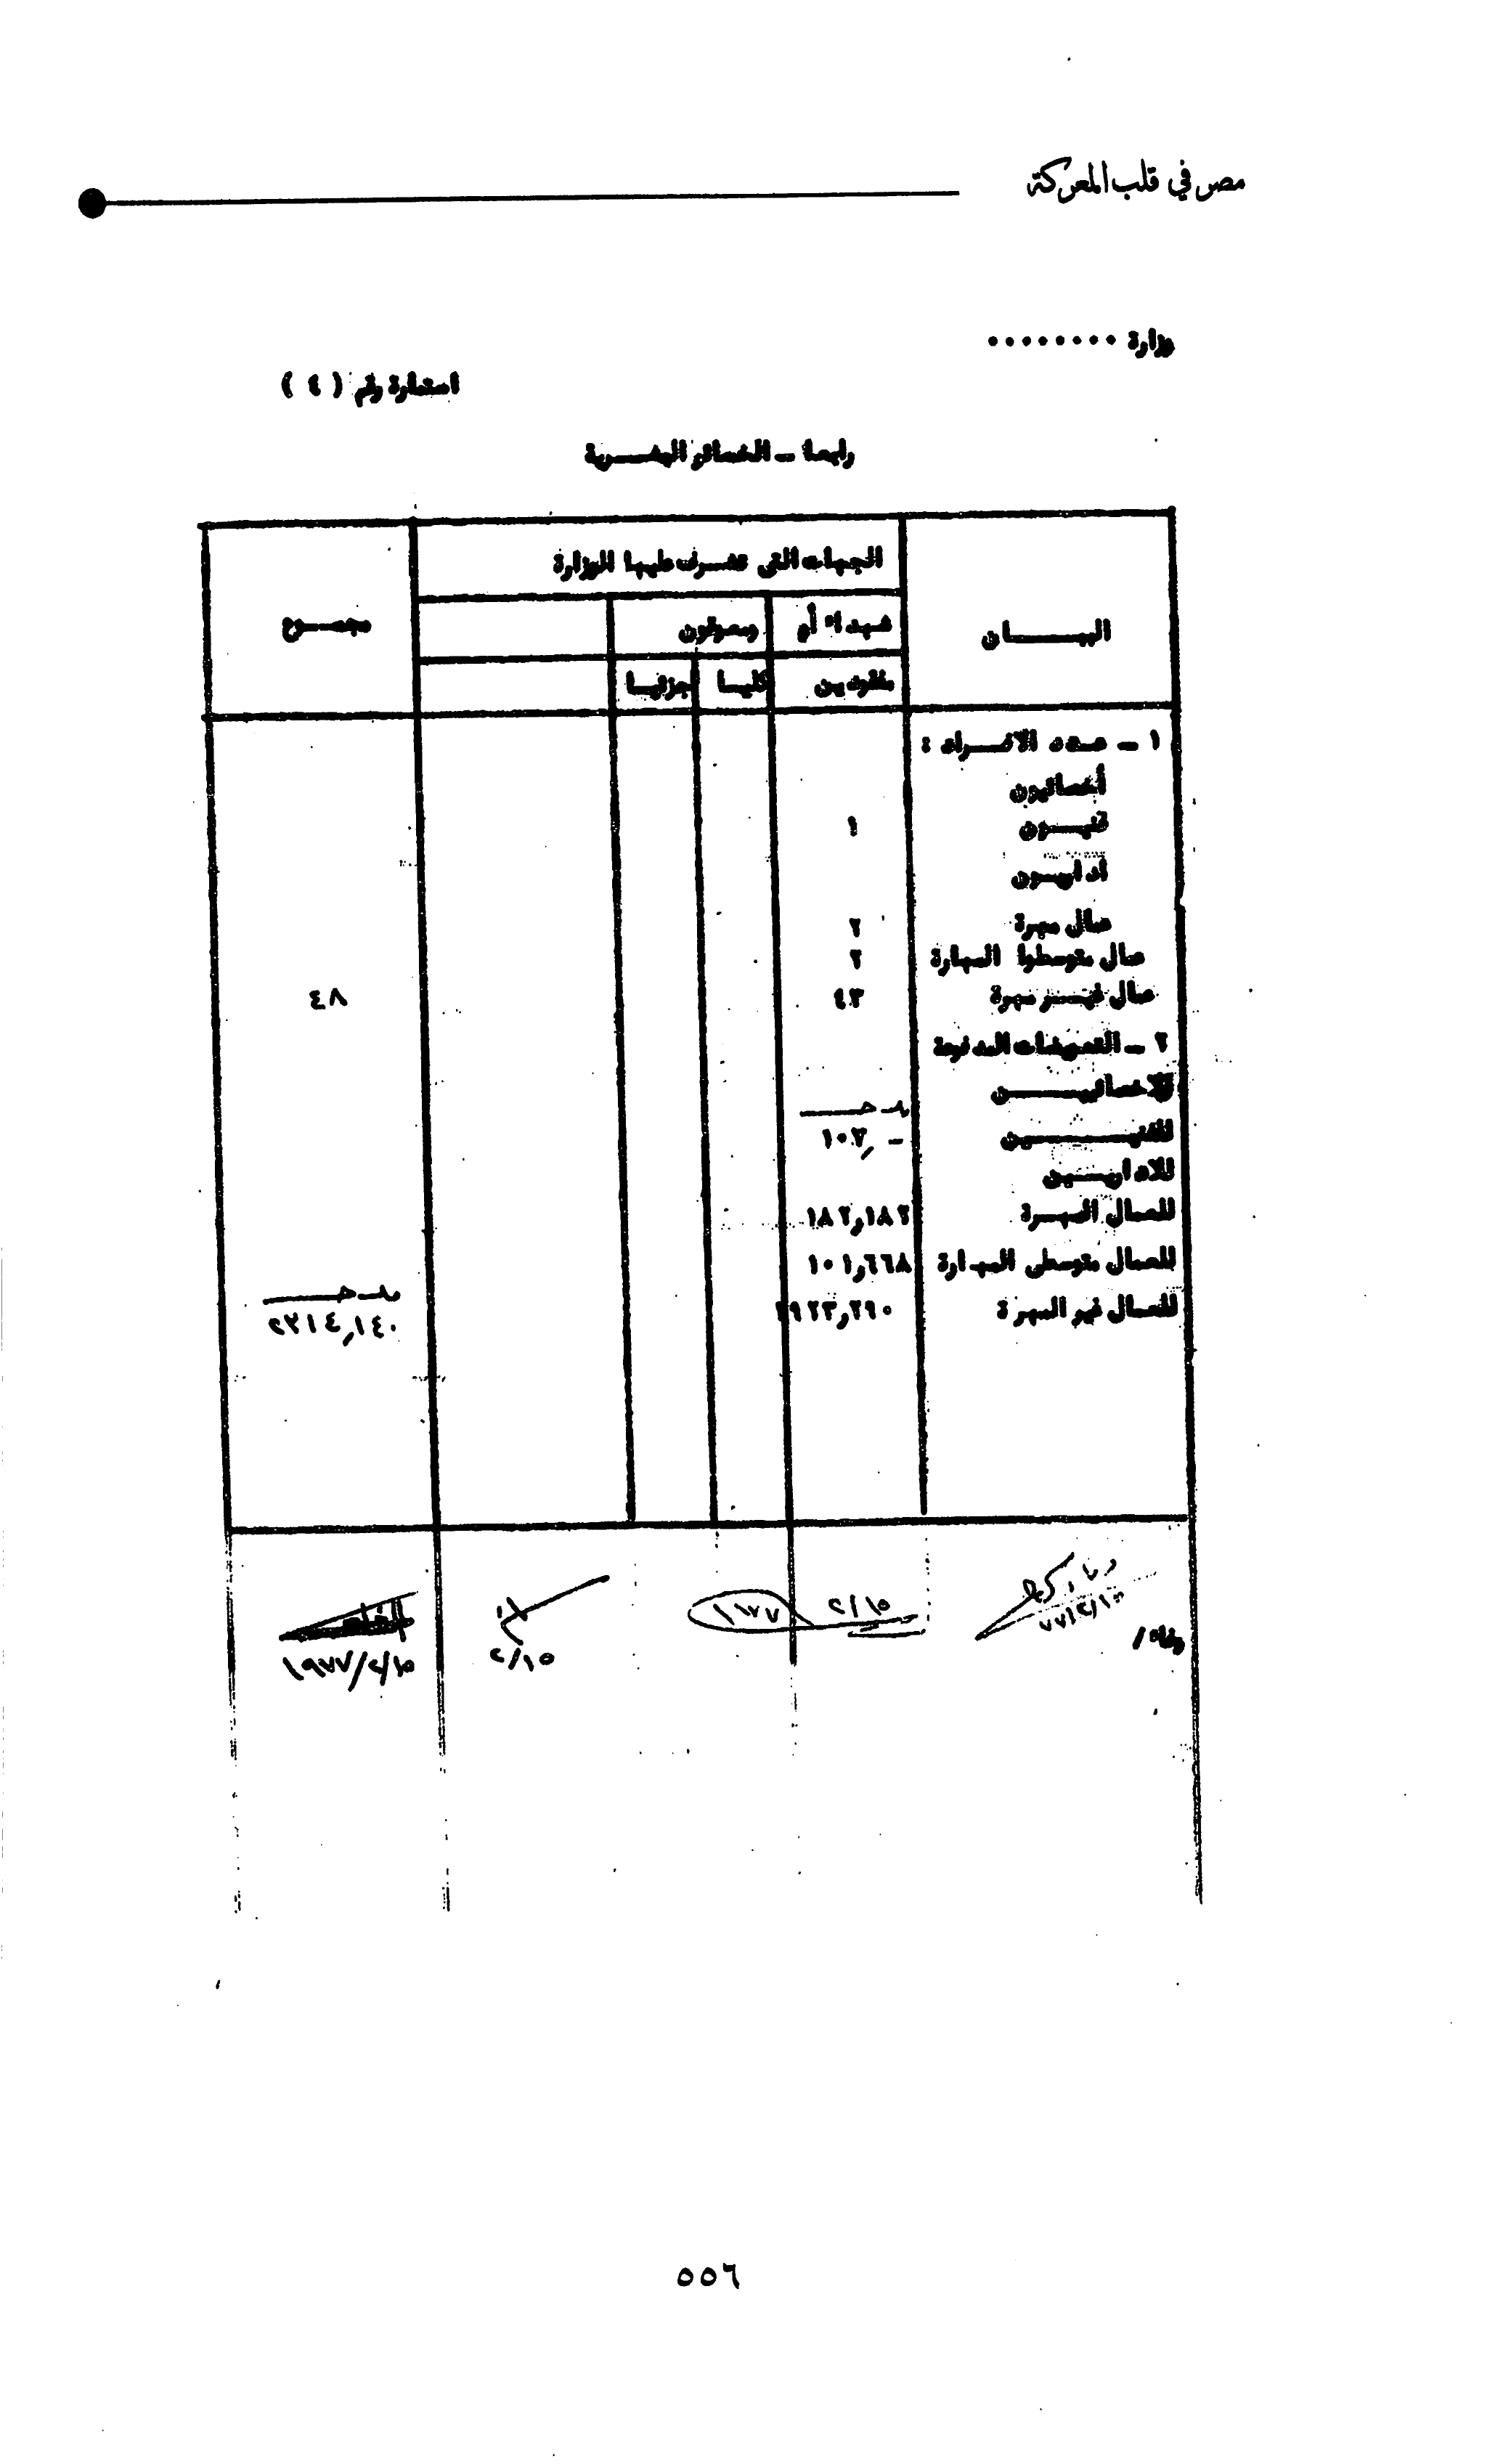 مصر في قلب المعركة
وزارة ........
استمارة رقم ( ٤ )
رابعا ـ الخسائر البشرية
البيان
الجهات التى تشرف عليها الوزارة
مجموع
شهداء أو
ومعوقون
مفقودين
كليا
جزئيا
١ ـ عدد الافراد :
أخصائيون
فنيون ١
اداريون
عمال مهرة ٢
عمال متوسطوا المهارة ٢
عمال غير مهرة ٤٣ ٤٨
٢ ـ التعويضات المدفوعة
للاخصائيين
للفنيين ١٠٧,ـ
للاداريين
للعمال المهرة ١٨٢,١٨٢
للعمال متوسطى المهارة ١٠١,٦٦٨
للعمال غير المهرة ١٩٢٣,٢٩٠ ٢٣١٤,١٤٠
وفاء /
٢/١٥
٢/١٥
١٩٧٧/٢/١٥
٥٥٦